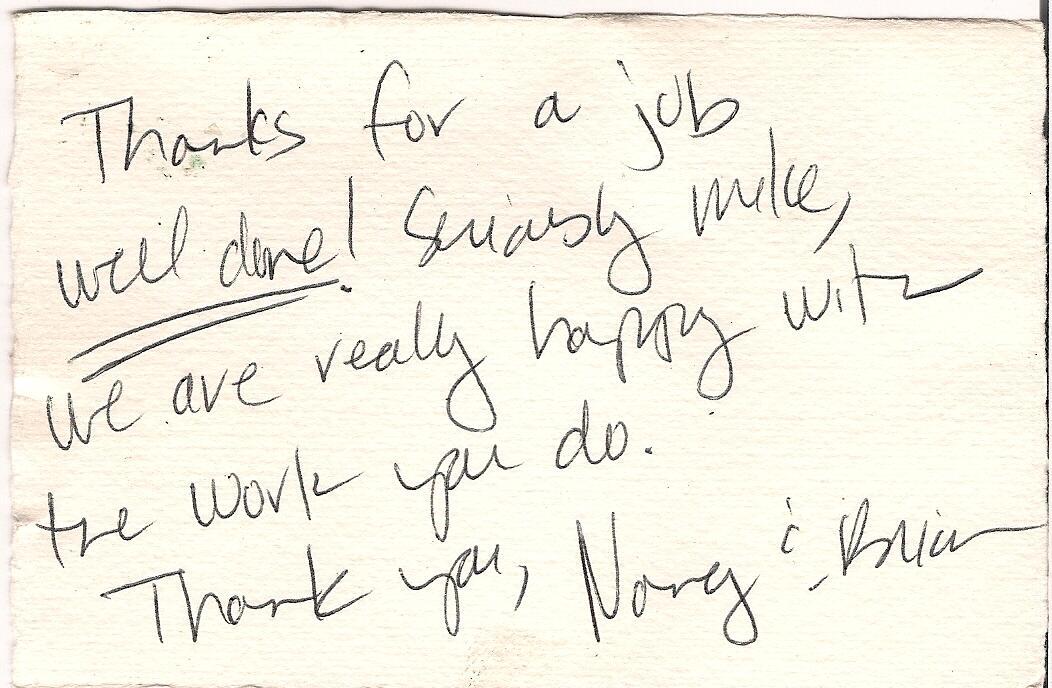 Thanks for a job
well done! Seriously Mike,
we are really happy with
the work you do.
Thank you, Nancy & Brian